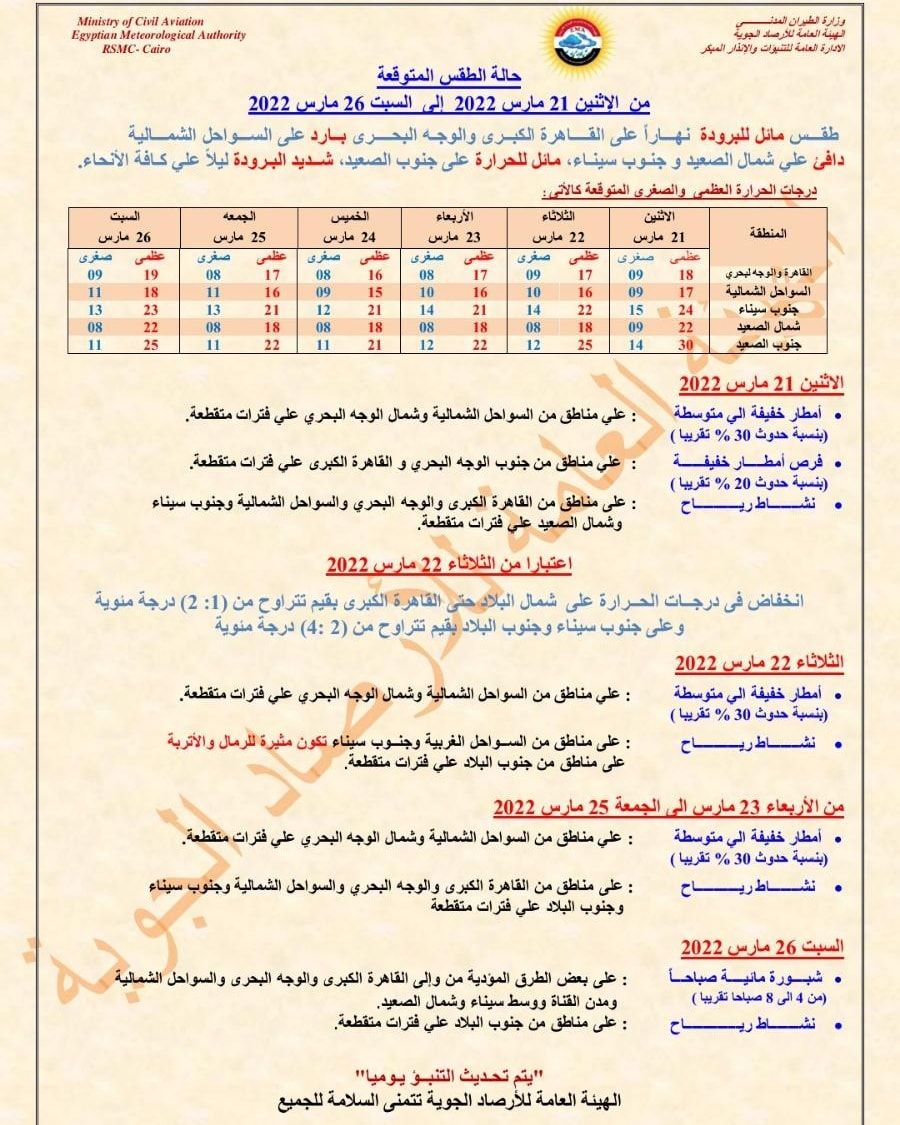 Ministry of Civil Aviation
Egyptian Meteorological Authority
RSMC- Cairo
وزارة الطيران المدنـــــي
الهيئة العامة للأرصاد الجوية
الادارة العامة للتنبؤات والانذار المبكر
EMA
حالة الطقس المتوقعة
من الإثنين 21 مارس 2022 إلى السبت 26 مارس 2022
طقــس مائل للبرودة نهــاراً على القــاهرة الكبرى والوجه البحــرى بــارد على الســواحل الشمــالية
دافئ علي شمال الصعيد و جنـوب سيناء، مائل للحرارة على جنوب الصعيد، شـديد البرودة ليلاً علي كافة الأنحاء.
درجات الحرارة العظمى والصغرى المتوقعة كالأتى:
المنطقة الاثنين 21 مارس الثلاثاء 22 مارس الأربعاء 23 مارس الخميس 24 مارس الجمعه 25 مارس السبت 26 مارس
عظمى صغرى عظمى صغرى عظمى صغرى عظمى صغرى عظمى صغرى عظمى صغرى
القاهرة والوجه لبحري 18 09 17 09 17 08 16 08 17 08 19 09
السواحل الشمالية 17 09 16 10 16 10 15 09 16 11 18 11
جنوب سيناء 24 15 22 14 21 14 21 12 21 13 23 13
شمال الصعيد 22 09 18 08 18 08 18 08 18 08 22 08
جنوب الصعيد 30 14 25 12 22 12 21 11 22 11 25 11
الاثنين 21 مارس 2022
• أمطار خفيفة الي متوسطة : علي مناطق من السواحل الشمالية وشمال الوجه البحري علي فترات متقطعة.
(بنسبة حدوث 30 % تقريبا )
• فرص أمطـــار خفيفــــة : علي مناطق من جنوب الوجه البحري و القاهرة الكبرى علي فترات متقطعة.
(بنسبة حدوث 20 % تقريبا )
• نشـــاط ريـــــــاح : على مناطق من القاهرة الكبرى والوجه البحري والسواحل الشمالية وجنوب سيناء
وشمال الصعيد علي فترات متقطعة.
اعتبارا من الثلاثاء 22 مارس 2022
انخفاض فى درجـات الحـرارة على شمال البلاد حتى القاهرة الكبرى بقيم تتراوح من (1: 2) درجة مئوية
وعلى جنوب سيناء وجنوب البلاد بقيم تتراوح من (2 :4) درجة مئوية
الثلاثاء 22 مارس 2022
• أمطار خفيفة الي متوسطة : علي مناطق من السواحل الشمالية وشمال الوجه البحري علي فترات متقطعة.
(بنسبة حدوث 30 % تقريبا )
• نشـــاط ريـــــــاح : على مناطق من الســواحل الغربية وجنــوب سيناء تكون مثيرة للرمال والأتربة
على مناطق من جنوب البلاد علي فترات متقطعة.
من الأربعاء 23 مارس الى الجمعة 25 مارس 2022
• أمطار خفيفة الي متوسطة : علي مناطق من السواحل الشمالية وشمال الوجه البحري علي فترات متقطعة.
(بنسبة حدوث 30 % تقريبا )
• نشـــاط ريـــــــاح : على مناطق من القاهرة الكبرى والوجه البحري والسواحل الشمالية وجنوب سيناء
وجنوب البلاد علي فترات متقطعة
السبت 26 مارس 2022
• شبـــورة مائيــــة صباحـــاً : على بعض الطرق المؤدية من وإلى القاهرة الكبرى والوجه البحرى والسواحل الشمالية
(من 4 الى 8 صباحا تقريبا ) ومدن القناة ووسط سيناء وشمال الصعيد.
• نشـــاط ريـــــــاح : على مناطق من جنوب البلاد علي فترات متقطعة.
"يتم تحديث التنبـؤ يوميا"
الهيئة العامة للأرصاد الجوية تتمنى السلامة للجميع
الهيئة العامة للأرصاد الجوية